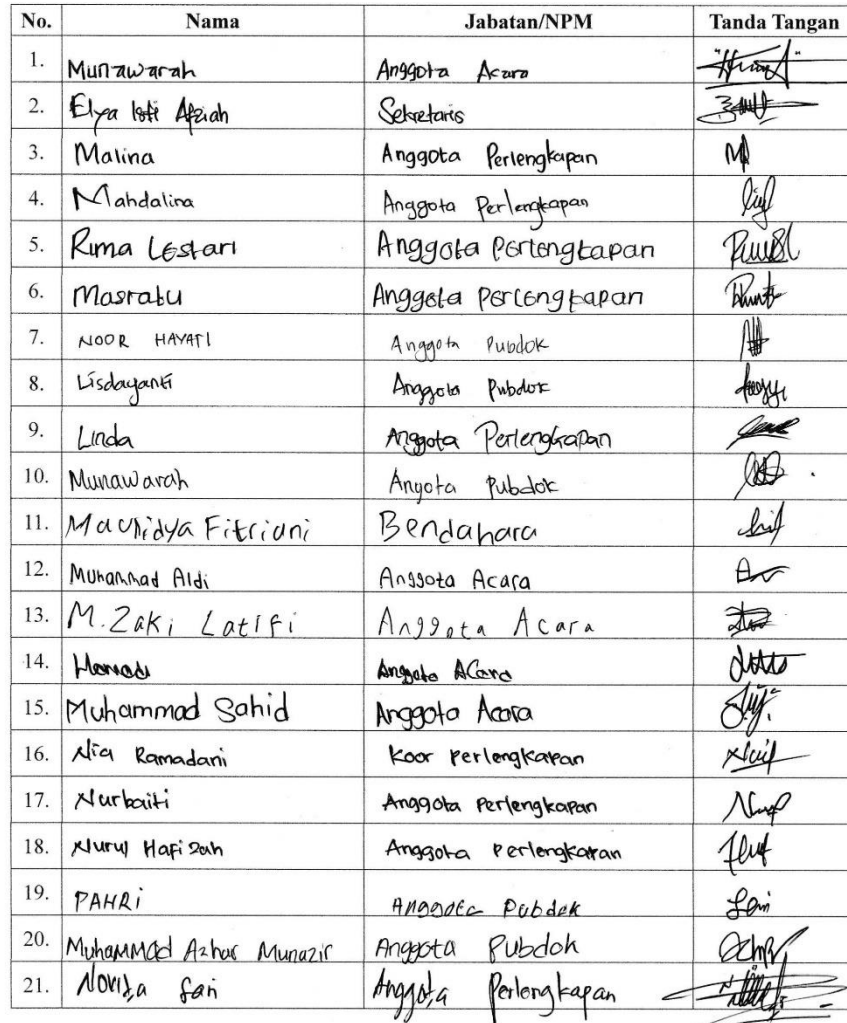 No. Nama Jabatan/NPM Tanda Tangan
1. Munawarah Anggota Acara
2. Elya Isti Afziah Sekretaris
3. Malina Anggota Perlengkapan
4. Mahdalina Anggota Perlengkapan
5. Rima Lestari Anggota Perlengkapan
6. Masratu Anggota Perlengkapan
7. NOOR HAYATI Anggota Pubdok
8. Lisdayanti Anggota Pubdok
9. Linda Anggota Perlengkapan
10. Munawarah Anyota Pubdok
11. Maulidya Fitriani Bendahara
12. Muhammad Aldi Anggota Acara
13. M. Zaki Latifi Anggota Acara
14. Anggota Acara
15. Muhammad Sahid Anggota Acara
16. Nia Ramadani Koor Perlengkapan
17. Nurbaiti Anggota Perlengkapan
18. Nurul Hafizah Anggota Perlengkapan
19. PAHRI Anggota Pubdok
20. Muhammad Azhar Munazir Anggota Pubdok
21. Novita Sari Anggota Perlengkapan